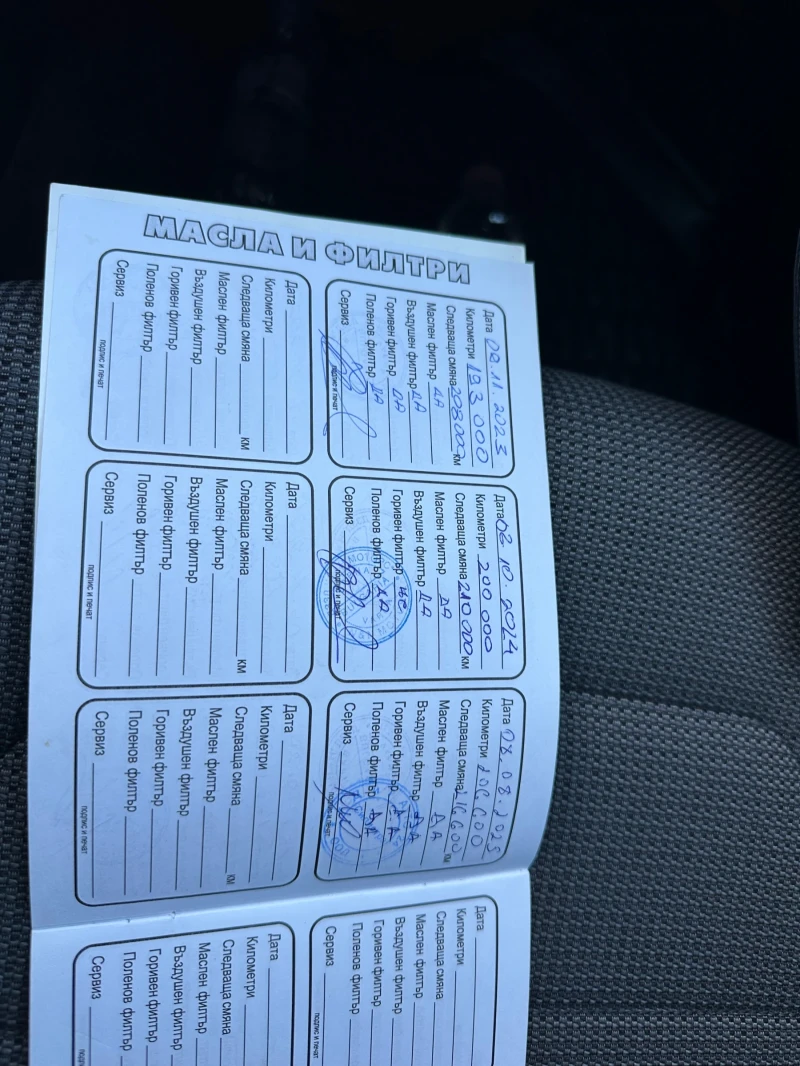 МАСЛА И ФИЛТРИ
Дата 02.11.2023
Километри 193.000
Следваща смяна 208000 км
Маслен филтър ДА
Въздушен филтър ДА
Горивен филтър ДА
Поленов филтър ДА
Сервиз
подпис и печат
Дата 02.10.2024
Километри 200.000
Следваща смяна 210.000 км
Маслен филтър ДА
Въздушен филтър ДА
Горивен филтър не
Поленов филтър ДА
Сервиз
подпис и печат
Дата 08.2025
Километри 206600
Следваща смяна 216600 км
Маслен филтър ДА
Въздушен филтър ДА
Горивен филтър ДА
Поленов филтър ДА
Сервиз
подпис и печат
Дата
Километри
Следваща смяна км
Маслен филтър
Въздушен филтър
Горивен филтър
Поленов филтър
Сервиз
подпис и печат
Дата
Километри
Следваща смяна км
Маслен филтър
Въздушен филтър
Горивен филтър
Поленов филтър
Сервиз
подпис и печат
Дата
Километри
Следваща смяна км
Маслен филтър
Въздушен филтър
Горивен филтър
Поленов филтър
Сервиз
подпис и печат
Дата
Километри
Следваща смяна
Маслен филтър
Въздушен филтър
Горивен филтър
Поленов филтър
Сервиз
подпис и печат
Дата
Километри
Следваща смяна
Маслен филтър
Въздушен филтър
Горивен филтър
Поленов филтър
Сервиз